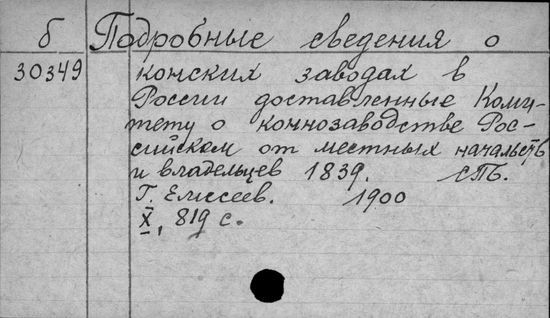 б Подробные сведения о
30349 конских заводах в
России доставленные Коми-
тету о коннозаводстве Рос-
сийском от местных начальств
и владельцев 1839. СПБ.
Г. Елисеев. 1900
X, 819 с.